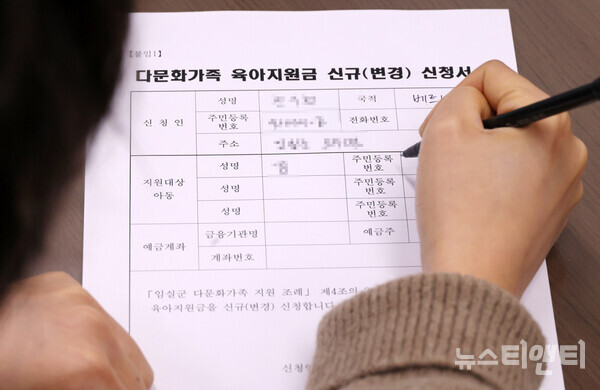 【붙임1】
다문화가족 육아지원금 신규(변경) 신청서
신청인 성명 국적 베트
주민등록번호 전화번호
주소
지원대상 아동 성명 주민등록번호
성명 주민등록번호
성명 주민등록번호
예금계좌 금융기관명 예금주
계좌번호
「임실군 다문화가족 지원 조례」 제4조의
육아지원금을 신규(변경) 신청합니다
신청인
뉴스티앤티